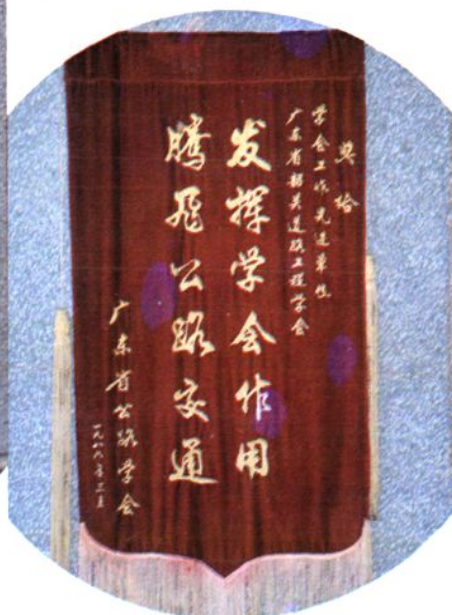 奖给
学会工作先进单位
广东省韶关道路工程学会
发挥学会作用
腾飞公路交通
广东省公路学会